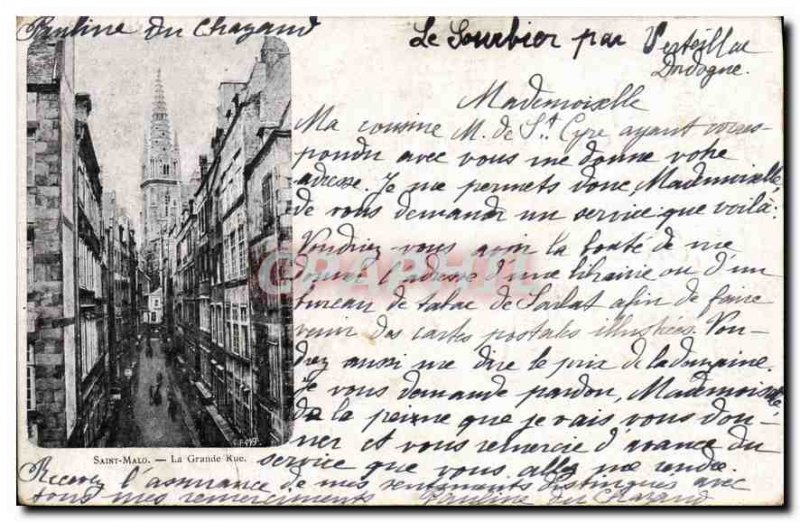 Pauline du Chazaud
Le Sourbier par Verteillac
Dordogne.
Mademoiselle
Ma cousine M. de St Cyre ayant corres-
pondu avec vous me donne votre
adresse. Je me permets donc Mademoiselle
de vous demander un service que voilà:
Voudriez-vous avoir la bonté de me
donner l'adresse d'une librairie ou d'un
bureau de tabac de Sarlat afin de faire
venir des cartes postales illustrées. Vou-
drez aussi me dire le prix de la douzaine.
Je vous demande pardon, Mademoiselle,
de la peine que je vais vous don-
ner et vous remercie d'avance du
service que vous allez me rendre.
Recevez l'assurance de mes sentiments distingués avec
tous mes remerciements Pauline du Chazaud
SAINT-MALO. — La Grande Rue.
CPAPHIL